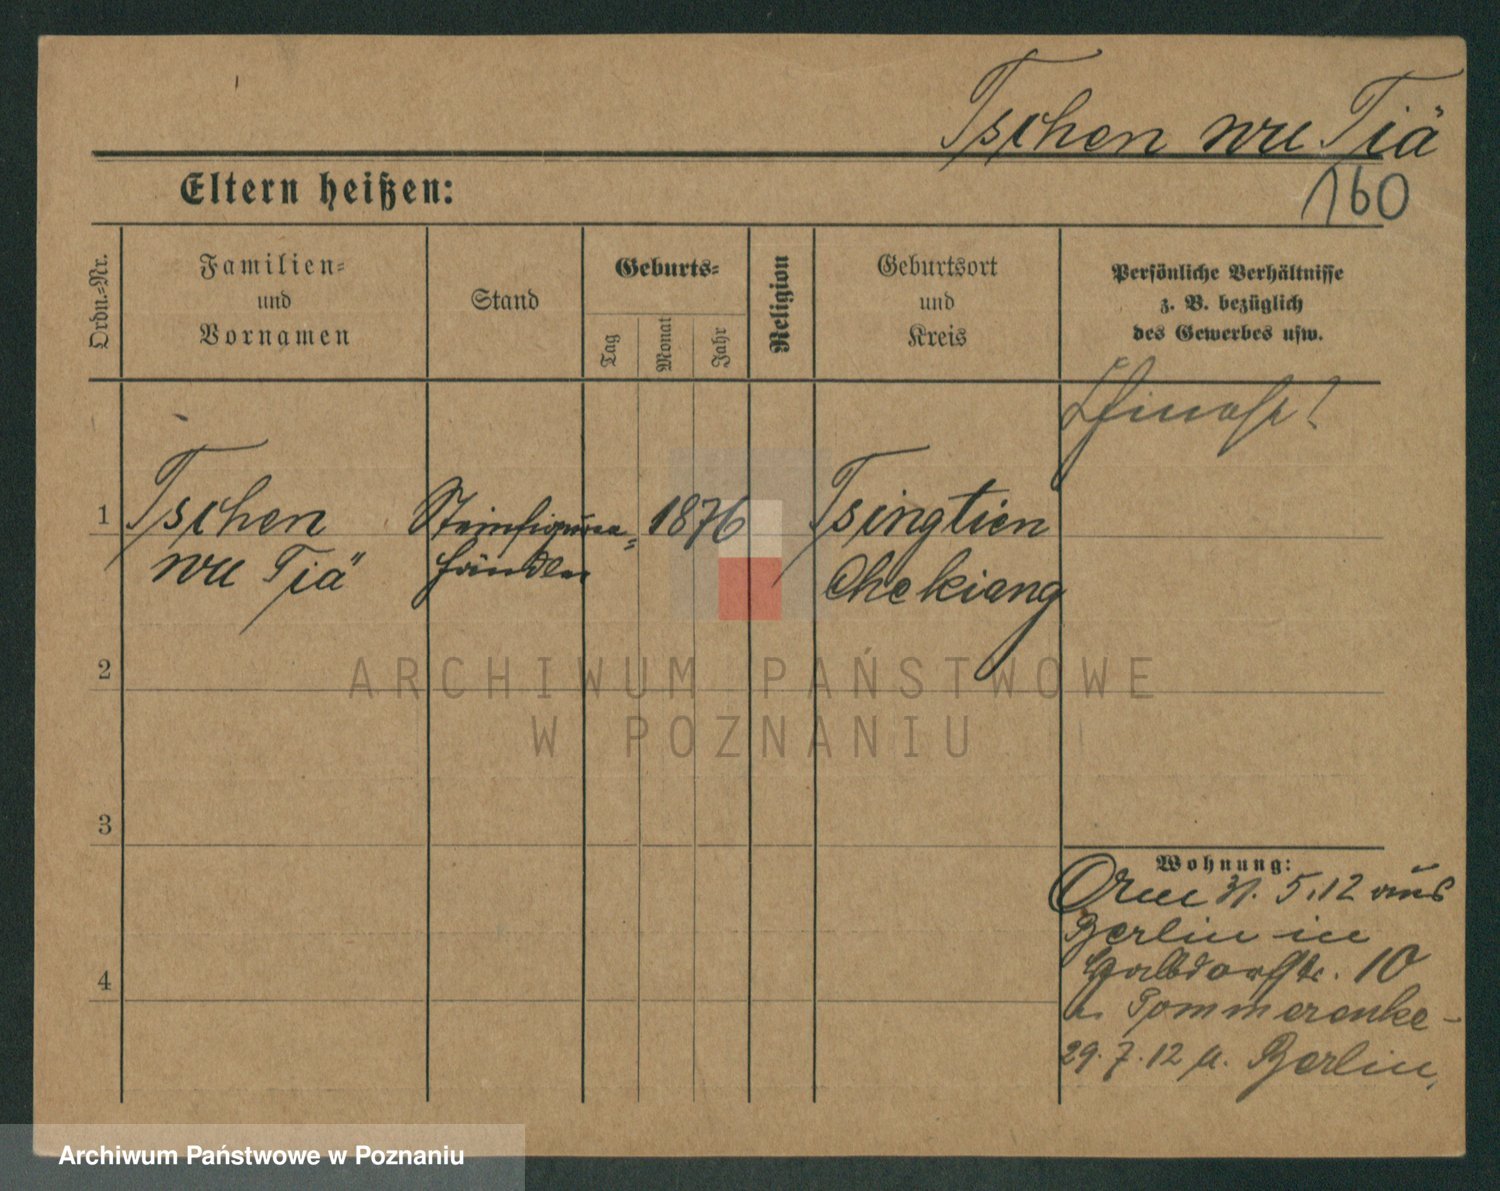 Tschen wu Tiä
160
Eltern heißen:
Ordn.=Nr.
Familien=
und
Vornamen
Stand
Geburts=
Tag
Monat
Jahr
Religion
Geburtsort
und
Kreis
Persönliche Verhältnisse
z. B. bezüglich
des Gewerbes usw.
1
Tschen
wu Tiä
Steinfiguren=
händler
1876
Tsingtien
Chekiang
2
3
4
Wohnung:
31. 5. 12 aus
Berlin in
10
Pommerenke
29. 7. 12 n. Berlin.
ARCHIWUM PAŃSTWOWE
W POZNANIU
Archiwum Państwowe w Poznaniu